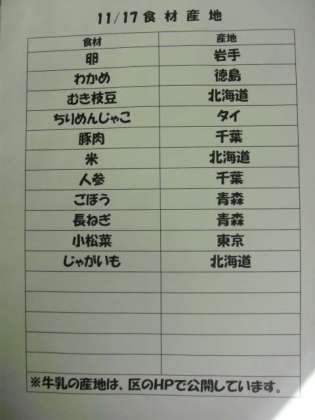 11/17食材産地
食材 産地
卵 岩手
わかめ 徳島
むき枝豆 北海道
ちりめんじゃこ タイ
豚肉 千葉
米 北海道
人参 千葉
ごぼう 青森
長ねぎ 青森
小松菜 東京
じゃがいも 北海道
※牛乳の産地は、区のHPで公開しています。